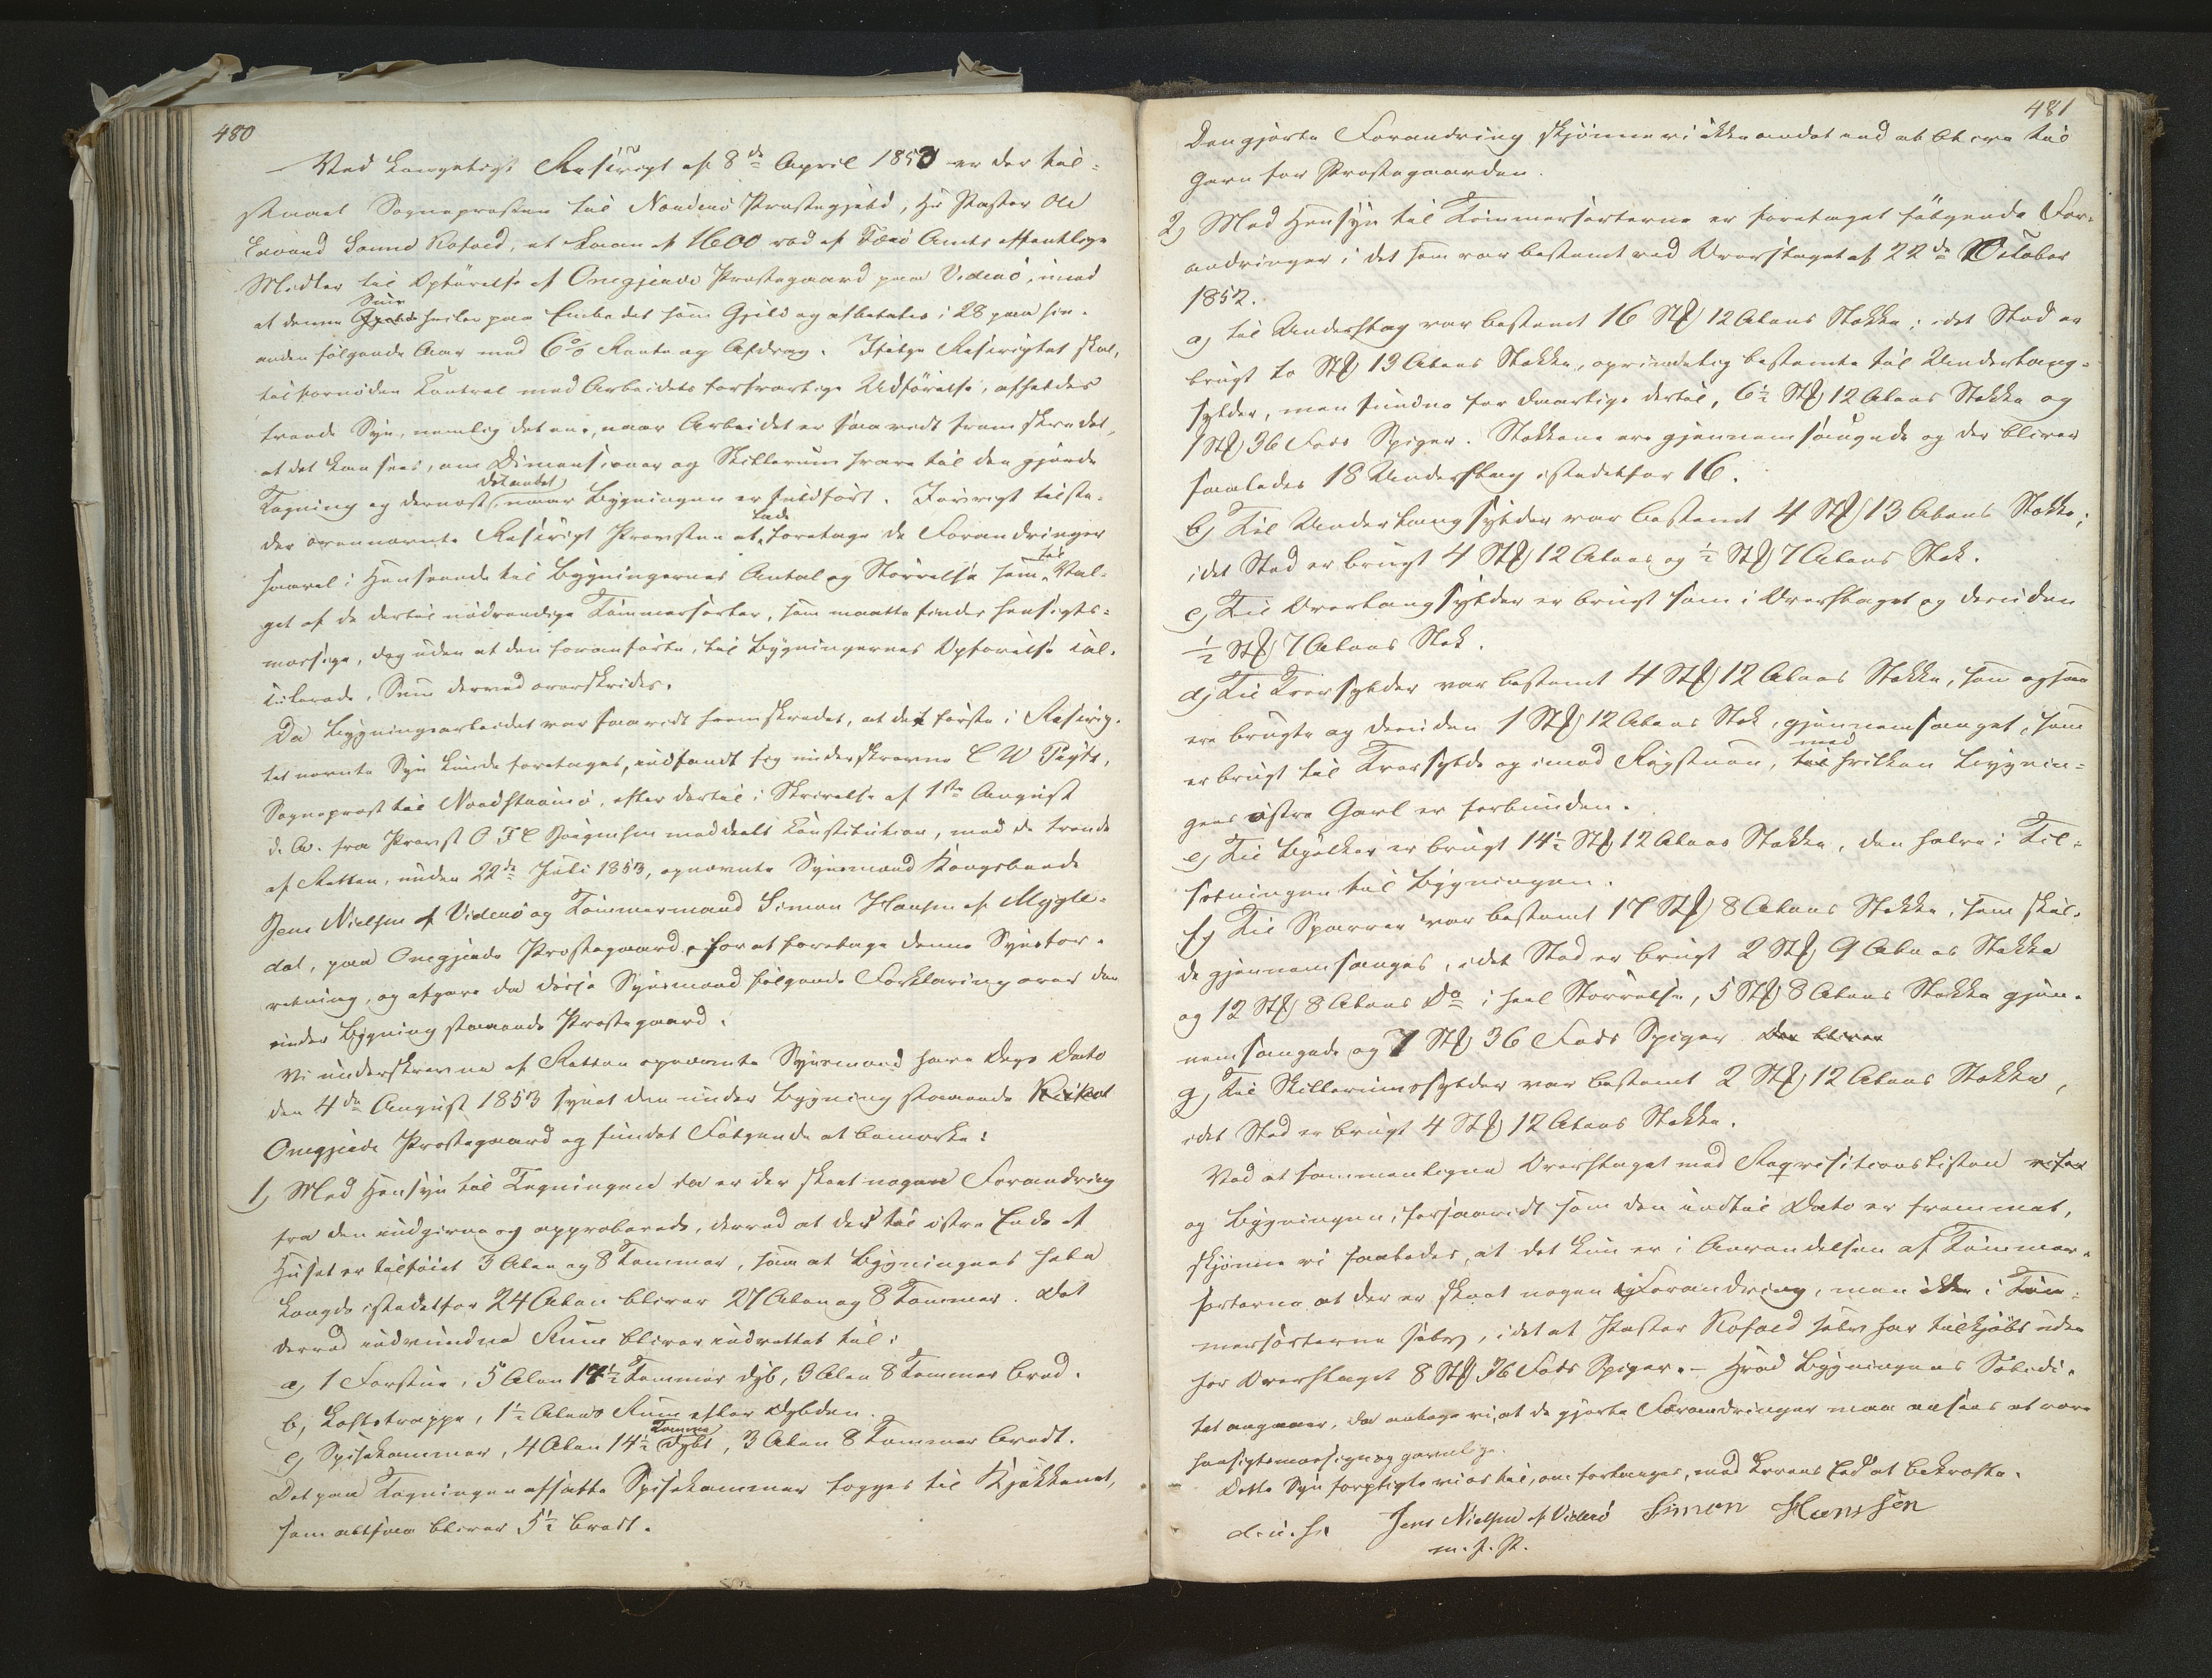 480
Ved Kongeligt Rescript af 8de April 1853 er der til-
staaet Sognepræsten til Norderø Præstegjeld, Hr Pastor Ole
Eivind Sanne Rofoed, et Laan af 1600 rd af Færø Amts offentlige
Midler til Opførelse af Onegjerde Præstegaard paa Viderø, imod
at denne Gjæld Sum hviler paa Embedet som Gjeld og afbetales i 28 paa hin-
anden følgende Aar med 6% Rente og Afdrag. Ifølge Rescriptet skal,
til fornøden Control med Arbeidets forsvarlige Udførelse, afholdes
tvende Syn, nemlig det ene, naar Arbeidet er saavidt fremskredet,
at det kan sees, om Dimensioner og Skillerum svare til den gjorde
Tegning og dernæst det andet, naar Bygningen er fuldført. Iøvrigt tilste-
der ovennævnte Rescript Provsten at lade foretage de Forandringer
saavel i Henseende til Bygningernes Antal og Størrelse som til Val-
get af de dertil nødvendige Tømmersorter, som maatte findes hensigts-
mæssige, dog uden at den foranførte, til Bygningernes Opførelse cal-
culerede, Sum derved overskrides.
Da Bygningsarbeidet var saavidt fremskredet, at det første i Rescrip-
tet nævnte Syn kunde foretages, indfandt sig underskrevne C W Prytz,
Sognepræst til Nordstrømø, efter dertil i Skrivelse af 1ste August
d. A. fra Provst O F C Jørgensen meddeelt Constitution, med de tvende
af Retten, under 22de Juli 1853, opnævnte Synsmænd Kongsbonde
Jens Nielsen af Viderø og Tømmermand Simon Hansen af Mygle-
dal, paa Onegjerde Præstegaard, for at foretage denne Synsfor-
retning, og afgave da disse Synsmænd følgende Forklaring over den
under Bygning staaende Præstegaard.
Vi underskrevne af Retten opnævnte Synsmænd have Dags Dato
den 4de August 1853 synet den under Bygning staaende
Onegjerde Præstegaard og fundet Følgende at bemærke:
1) Med Hensyn til Tegningen da er der skeet nogen Forandring
fra den indgivne og approberede, derved at der til østre Ende af
Huset er tilføiet 3 Alen og 8 Tommer, saa at Bygningens hele
Længde istedetfor 24 Alen bliver 27 Alen og 8 Tommer. Det
derved indvundne Rum bliver indrettet til:
a) 1 Forstue, 5 Alen 14½ Tommer dyb, 3 Alen 8 Tommer bred.
b) Loftstrappe, 1½ Alens Rum efter Dybden.
c) Spisekammer, 4 Alen 14½ Tomme dybt, 3 Alen 8 Tommer bredt.
Det paa Tegningen afsatte Spisekammer lægges til Kjøkkenet,
som altsaa bliver 5½ bredt.
481
Den gjorte Forandring skjønne vi ikke andet end at blive til
Gavn for Præstegaarden.
2) Med Hensyn til Tømmersorterne er foretaget følgende For-
andringer i det som var bestemt ved Overslaget af 22de October
1852.
a) til Understag var bestemt 16 Stk 12 Alens Stokke; idet Sted er
brugt to Stk 13 Alens Stokke, oprindelig bestemte til Underlang-
sylder, men fundne for daarlige dertil, 6½ Stk 12 Alens Stokke og
1 Stk 36 Fods Spiger. Stokkene ere gjennemsaugede og der bliver
saaledes 18 Understag istedetfor 16.
b) Til Underlangsylder var bestemt 4 Stk 13 Alens Stokke;
idet Sted er brugt 4 Stk 12 Alens og ½ Stk 7 Alens Stok.
c) Til Overlangsylder er brugt som i Overslaget og desuden
½ Stk 7 Alens Stok.
d) Til Tversylder var bestemt 4 Stk 12 Alens Stokke, som ogsaa
ere brugte og desuden 1 Stk 12 Alens Stok, gjennemsauget, som
er brugt til Tversylde og imod Røgstuen, til med hvilken Bygnin-
gens østre Gavl er forbunden.
e) Til Bjelker er brugt 14½ Stk 12 Alens Stokke, den halve i Til-
sætningen til Bygningen.
f) Til Sparrer var bestemt 17 Stk 8 Alens Stokke, som skul-
de gjennemsauges, idet Sted er brugt 2 Stk 9 Alens Stokke
og 12 Stk 8 Alens Do i heel Størrelse, 5 Stk 8 Alens Stokke gjen-
nemsaugede og 7 Stk 36 Fods Spiger. Der bliver
g) Til Skillerumssylder var bestemt 2 Stk 12 Alens Stokke,
idet Sted er brugt 4 Stk 12 Alens Stokke.
Ved at sammenligne Overslaget med Reqvisitionslisten
og Bygningen, forsaavidt som den indtil Dato er fremmet,
skjønne vi saaledes, at det kun er i Anvendelsen af Tømmer-
sorterne at der er skeet nogen Forandring, men ikke i Tøm-
mersorterne selv, idet at Pastor Rofoed selv har tilkjøbt uden
for Overslaget 8 Stk 36 Fods Spiger. – Hvad Bygningens Solidi-
tet angaaer, da antage vi, at de gjorte Forandringer maa ansees at være
hensigtsmæssige og gavnlige.
Dette Syn forpligte vi os til, om forlanges, med Lovens Eed at bekræfte.
d. u. s. Jens Nielsen af Viderø Simon Hanssen
m. f. P.